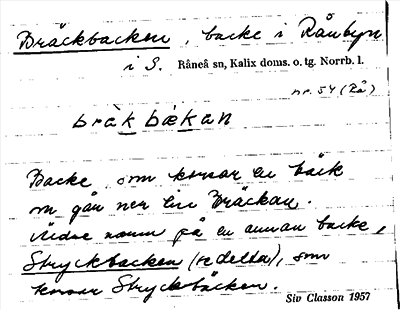 Bräckbacken, backe i Rånbyn
i S. Råneå sn, Kalix doms. o. tg. Norrb. l.
nr. 54 (Rå)
bräkbækan
Backe, som korsar en bäck
om går ner till Bräckan.
namn på en annan backe,
Stryckbacken (se detta), som
korsar Stryckbäcken.
Siv Classon 1957